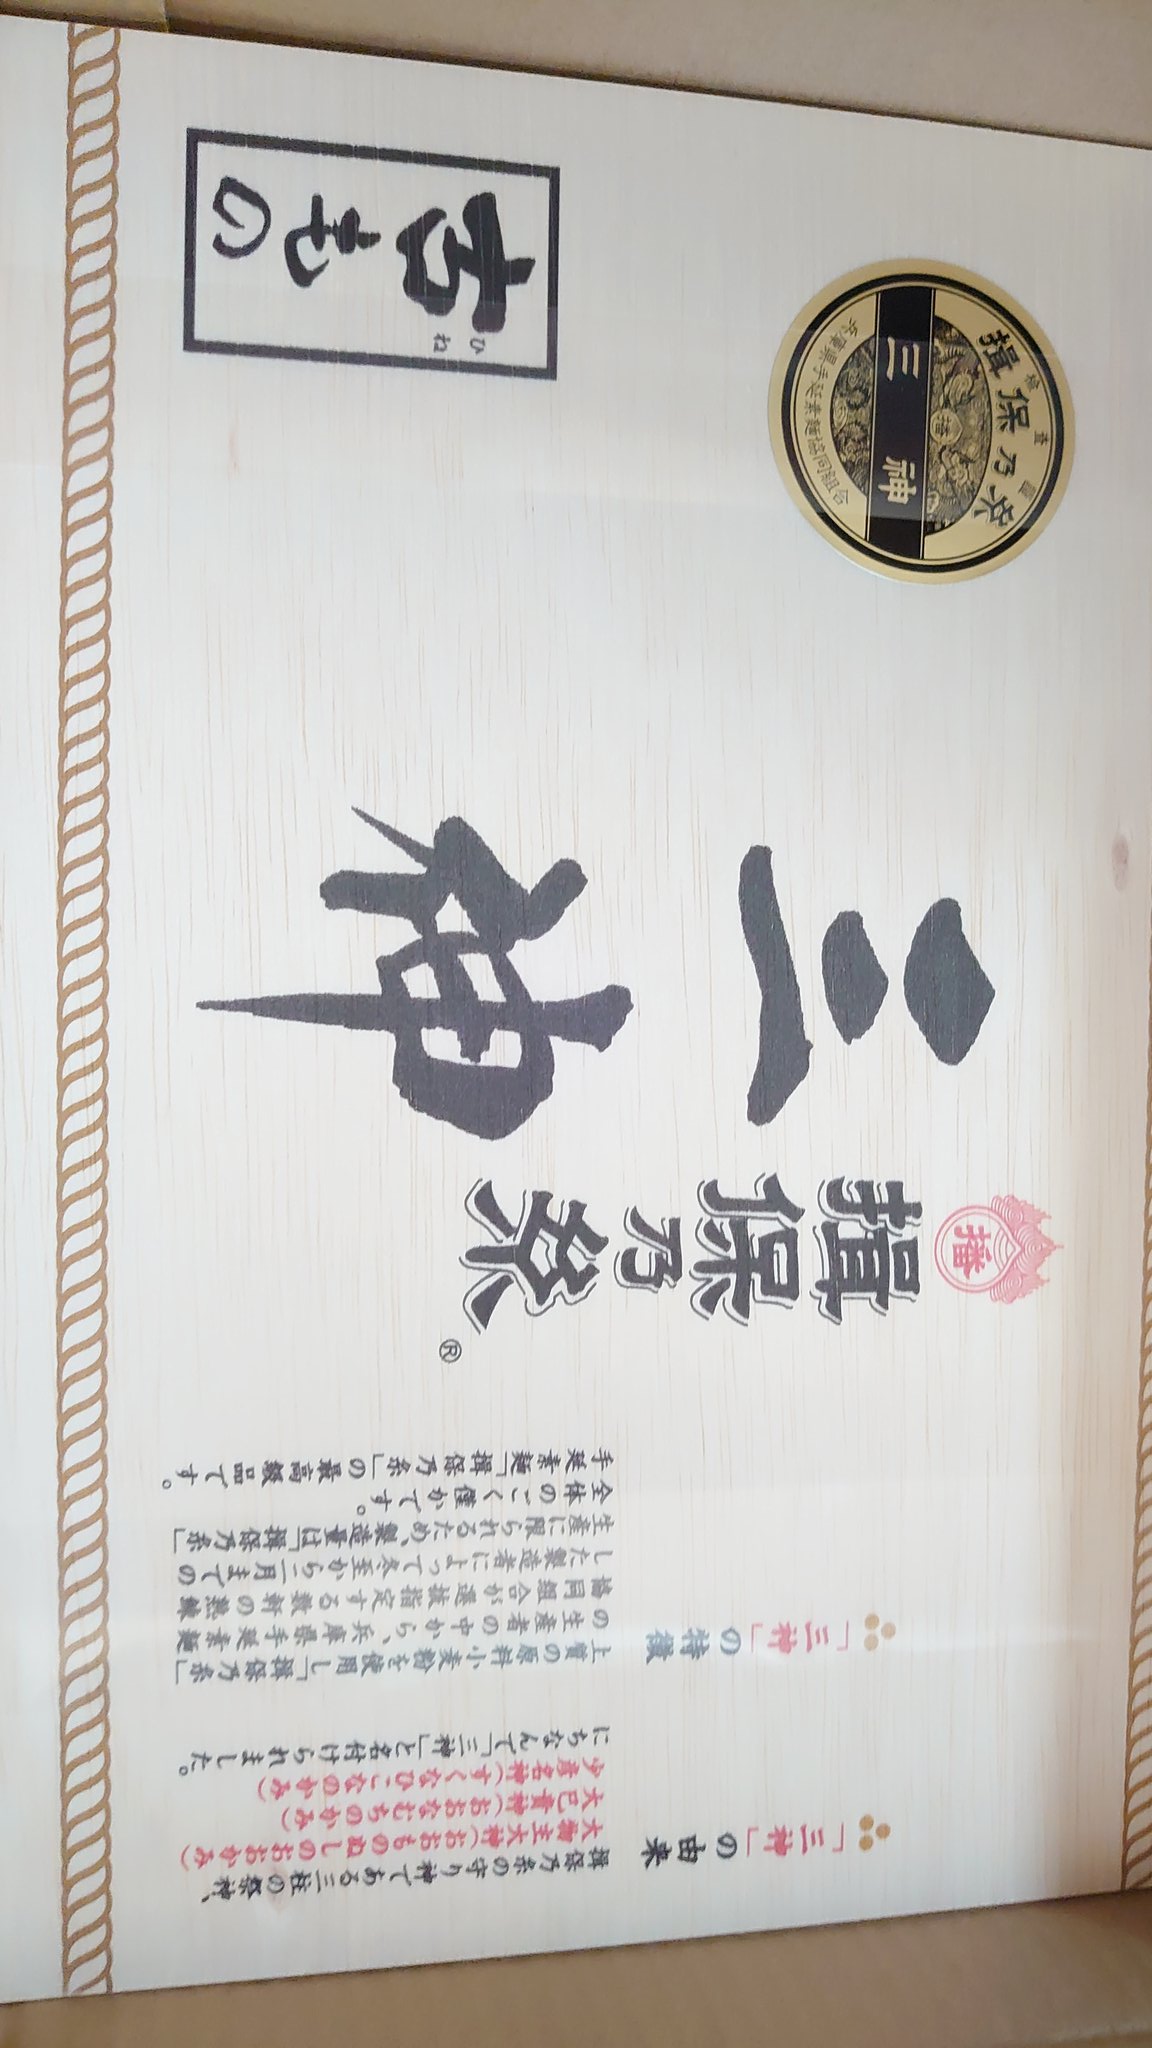 播
揖保乃糸®
三神
古もの
ひね
登録
揖保乃糸
三神
播
兵庫県手延素麺協同組合
「三神」の由来
揖保乃糸の守り神である三柱の祭神、
大物主大神(おおものぬしのおおかみ)
大己貴神(おおなむちのかみ)
少彦名神(すくなひこなのかみ)
にちなんで「三神」と名付けられました。
「三神」の特徴
上質の原料小麦粉を使用し「揖保乃糸」
の生産者の中から、兵庫県手延素麺
協同組合が選抜指定する数軒の熟練
した製造者によって冬至から二月までの
生産に限られるため、製造量は「揖保乃糸」
全体のごく僅かです。
手延素麺「揖保乃糸」の最高級品です。